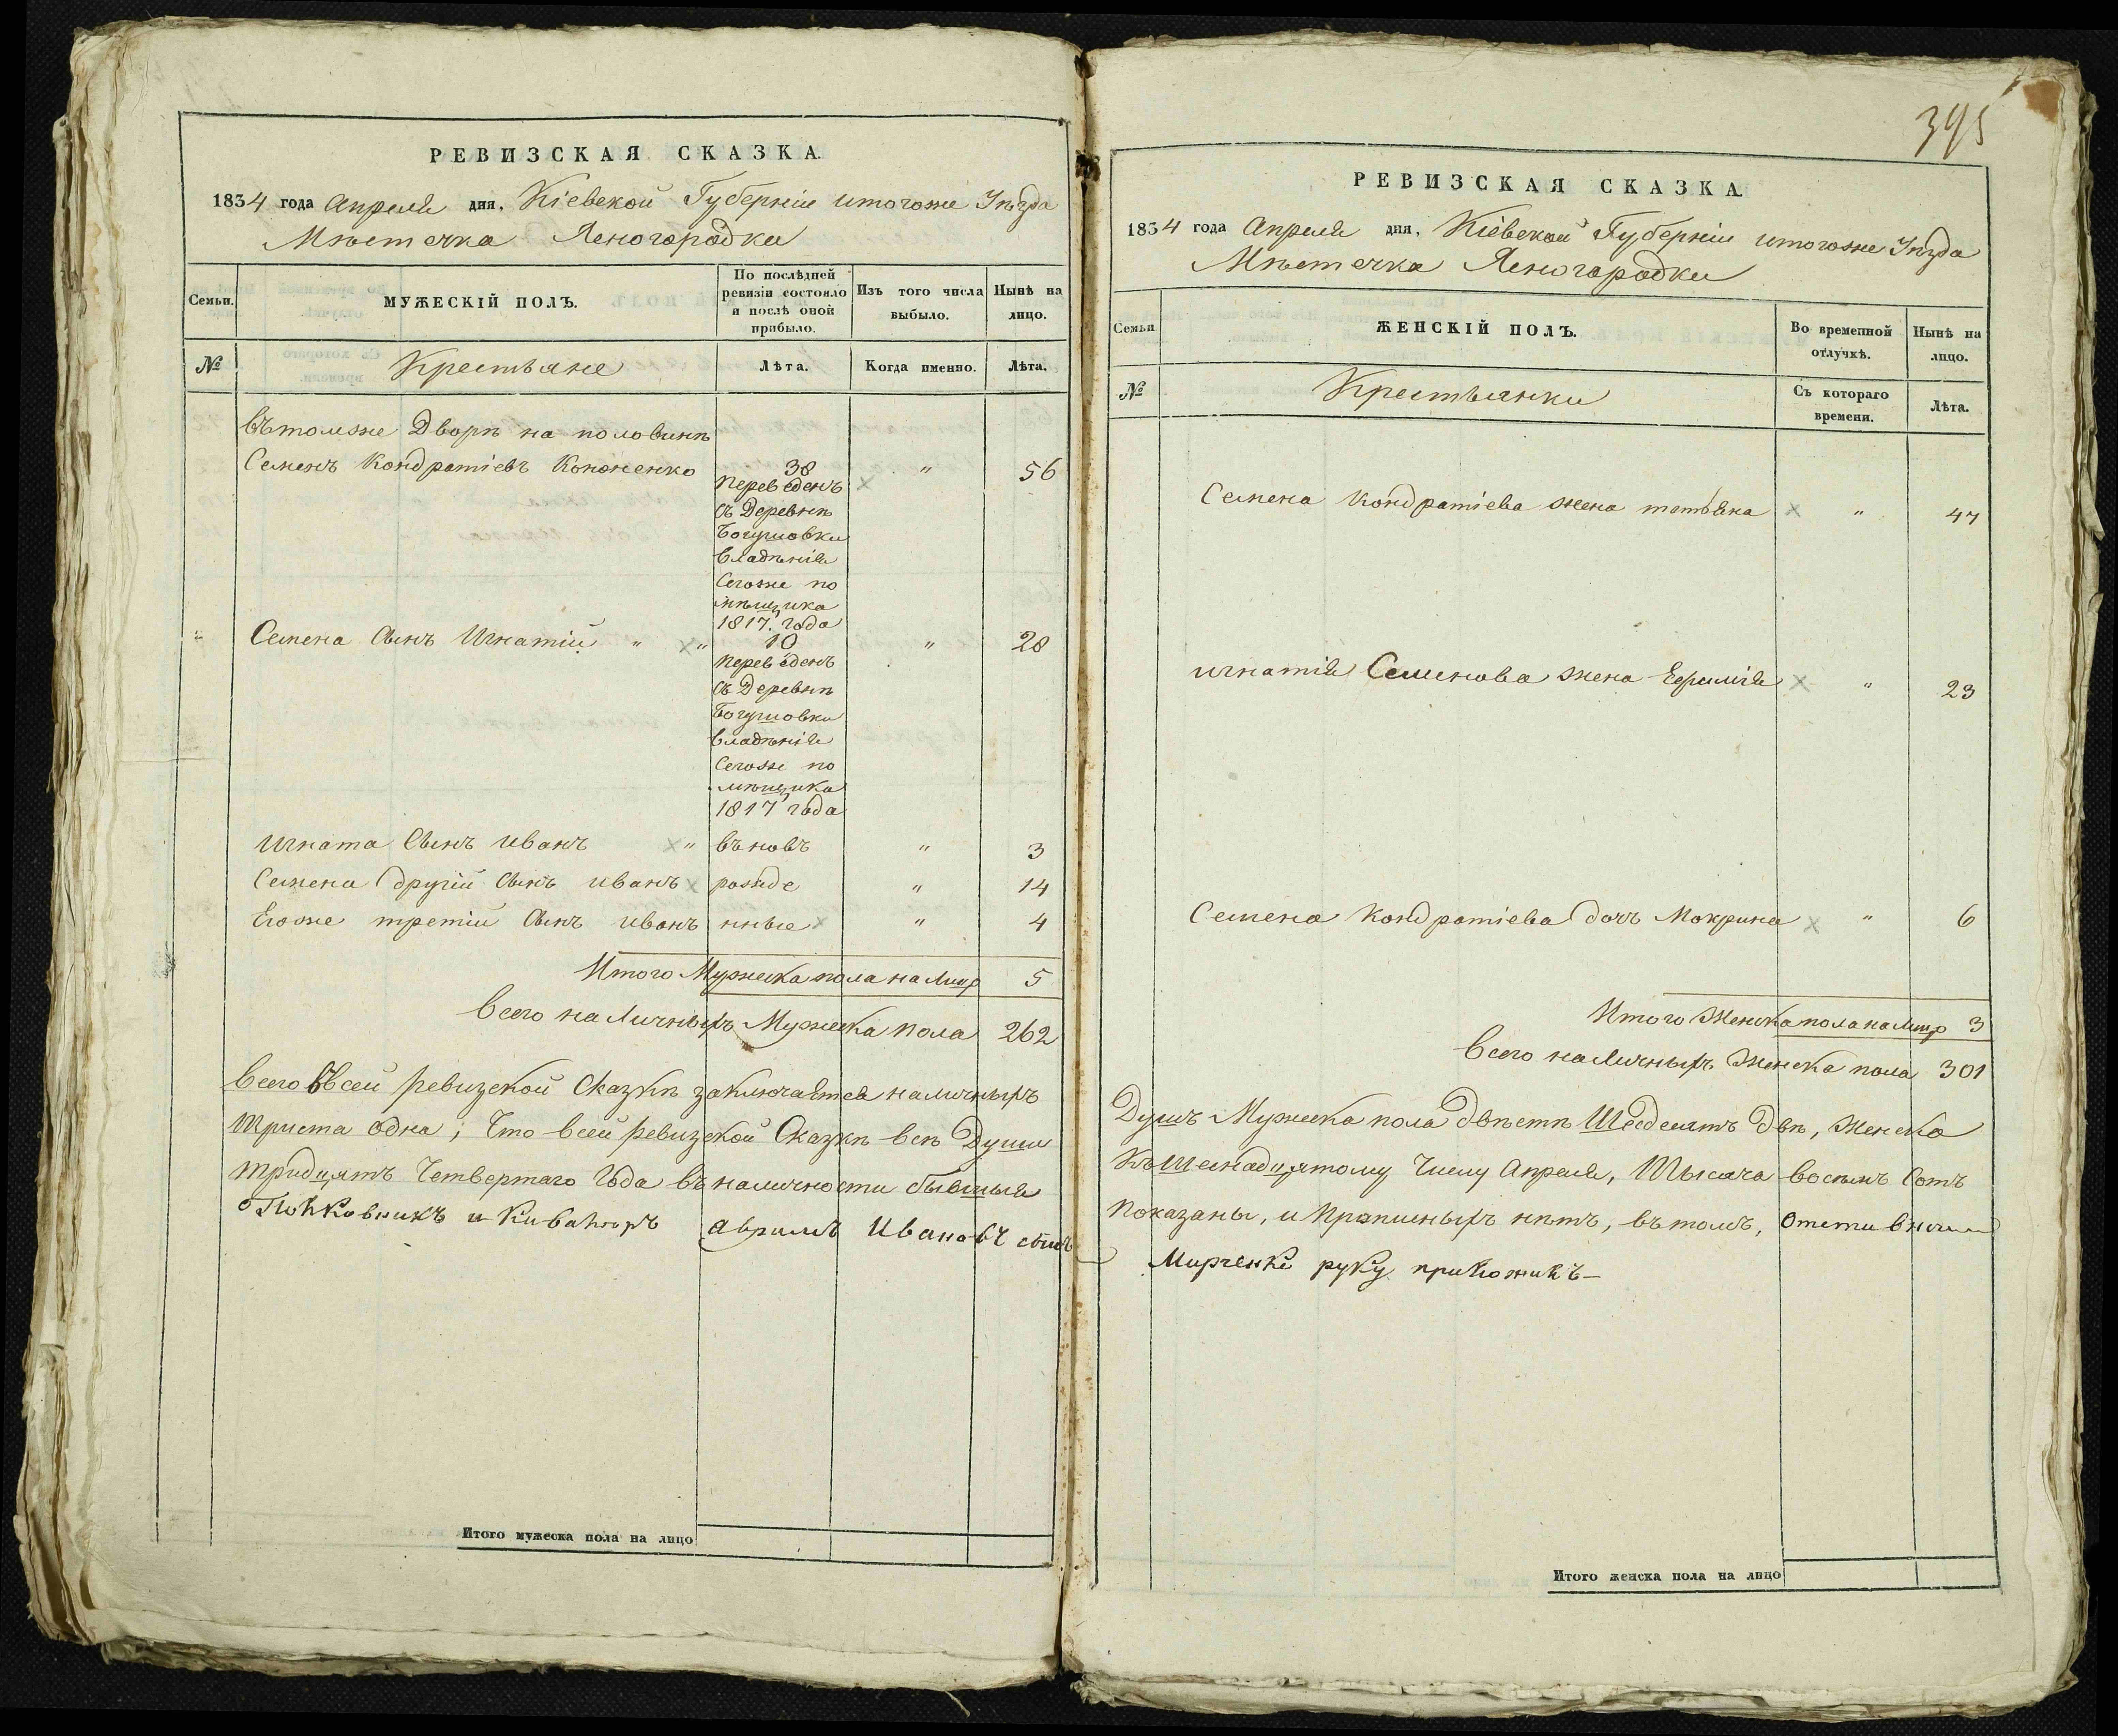 РЕВИЗСКАЯ СКАЗКА.
1834 года Апреля дня, Кіевской Губерніи итогоже Уѣзда
Мѣстечка Ясногородки
Семьи.
МУЖЕСКІЙ ПОЛЪ.
По послѣдней ревизіи состояло и послѣ оной прибыло.
Изъ того числа выбыло.
Нынѣ на лицо.
№
Крестьяне
Лѣта.
Когда именно.
Лѣта.
Вътомже Дворѣ на половинѣ
Семенъ Кондратіевъ Кононенко 38 " 56
переведенъ
съ Деревни
Богушовки
владѣнія
Сегоже по
мѣщика
1817. года
" Семена Сынъ Игнатій " " 10 " 28
переведенъ
съ Деревни
Богушовки
владѣнія
Сегоже по
мѣщика
1817 года
Игната Сынъ Иванъ " въновъ " 3
Семена другій Сынъ Иванъ рожде " 14
Егоже третій Сынъ Иванъ нные " 4
Итого Мужеска пола на Лицо 5
Всего на Личныхъ Мужеска пола 262
Всего Въсей ревизской Сказкѣ заключается наличныхъ
триста одна; Что всей ревизской Сказкѣ всѣ Души
тридцять Четвертаго Года въ наличности бывшыя
Аврамъ Ивановъ сынъ
Итого мужеска пола на лицо
395
РЕВИЗСКАЯ СКАЗКА.
1834 года Апреля дня, Кіевской Губерніи итогоже Уѣзда
Мѣстечка Ясногородки
Семьи
ЖЕНСКІЙ ПОЛЪ.
Во временной отлучкѣ.
Нынѣ на лицо.
№
Крестьянки
Съ котораго времени.
Лѣта.
Семена Кондратіева жена татьяна " 47
игнатія Семенова жена Ефимія " 23
Семена Кондратіева дочъ Мокрина " 6
Итого Женска пола на Лицо 3
Всего на Личныхъ Женска пола 301
Душъ Мужеска пола двѣстѣ Шесдесятъ двѣ, Женска
Къ Шеснадцятому Числу Апреля, Тысяча восемъ Сотъ
показаны, и прописныхъ нѣтъ, въ томъ,
руку приложилъ
Итого женска пола на лицо